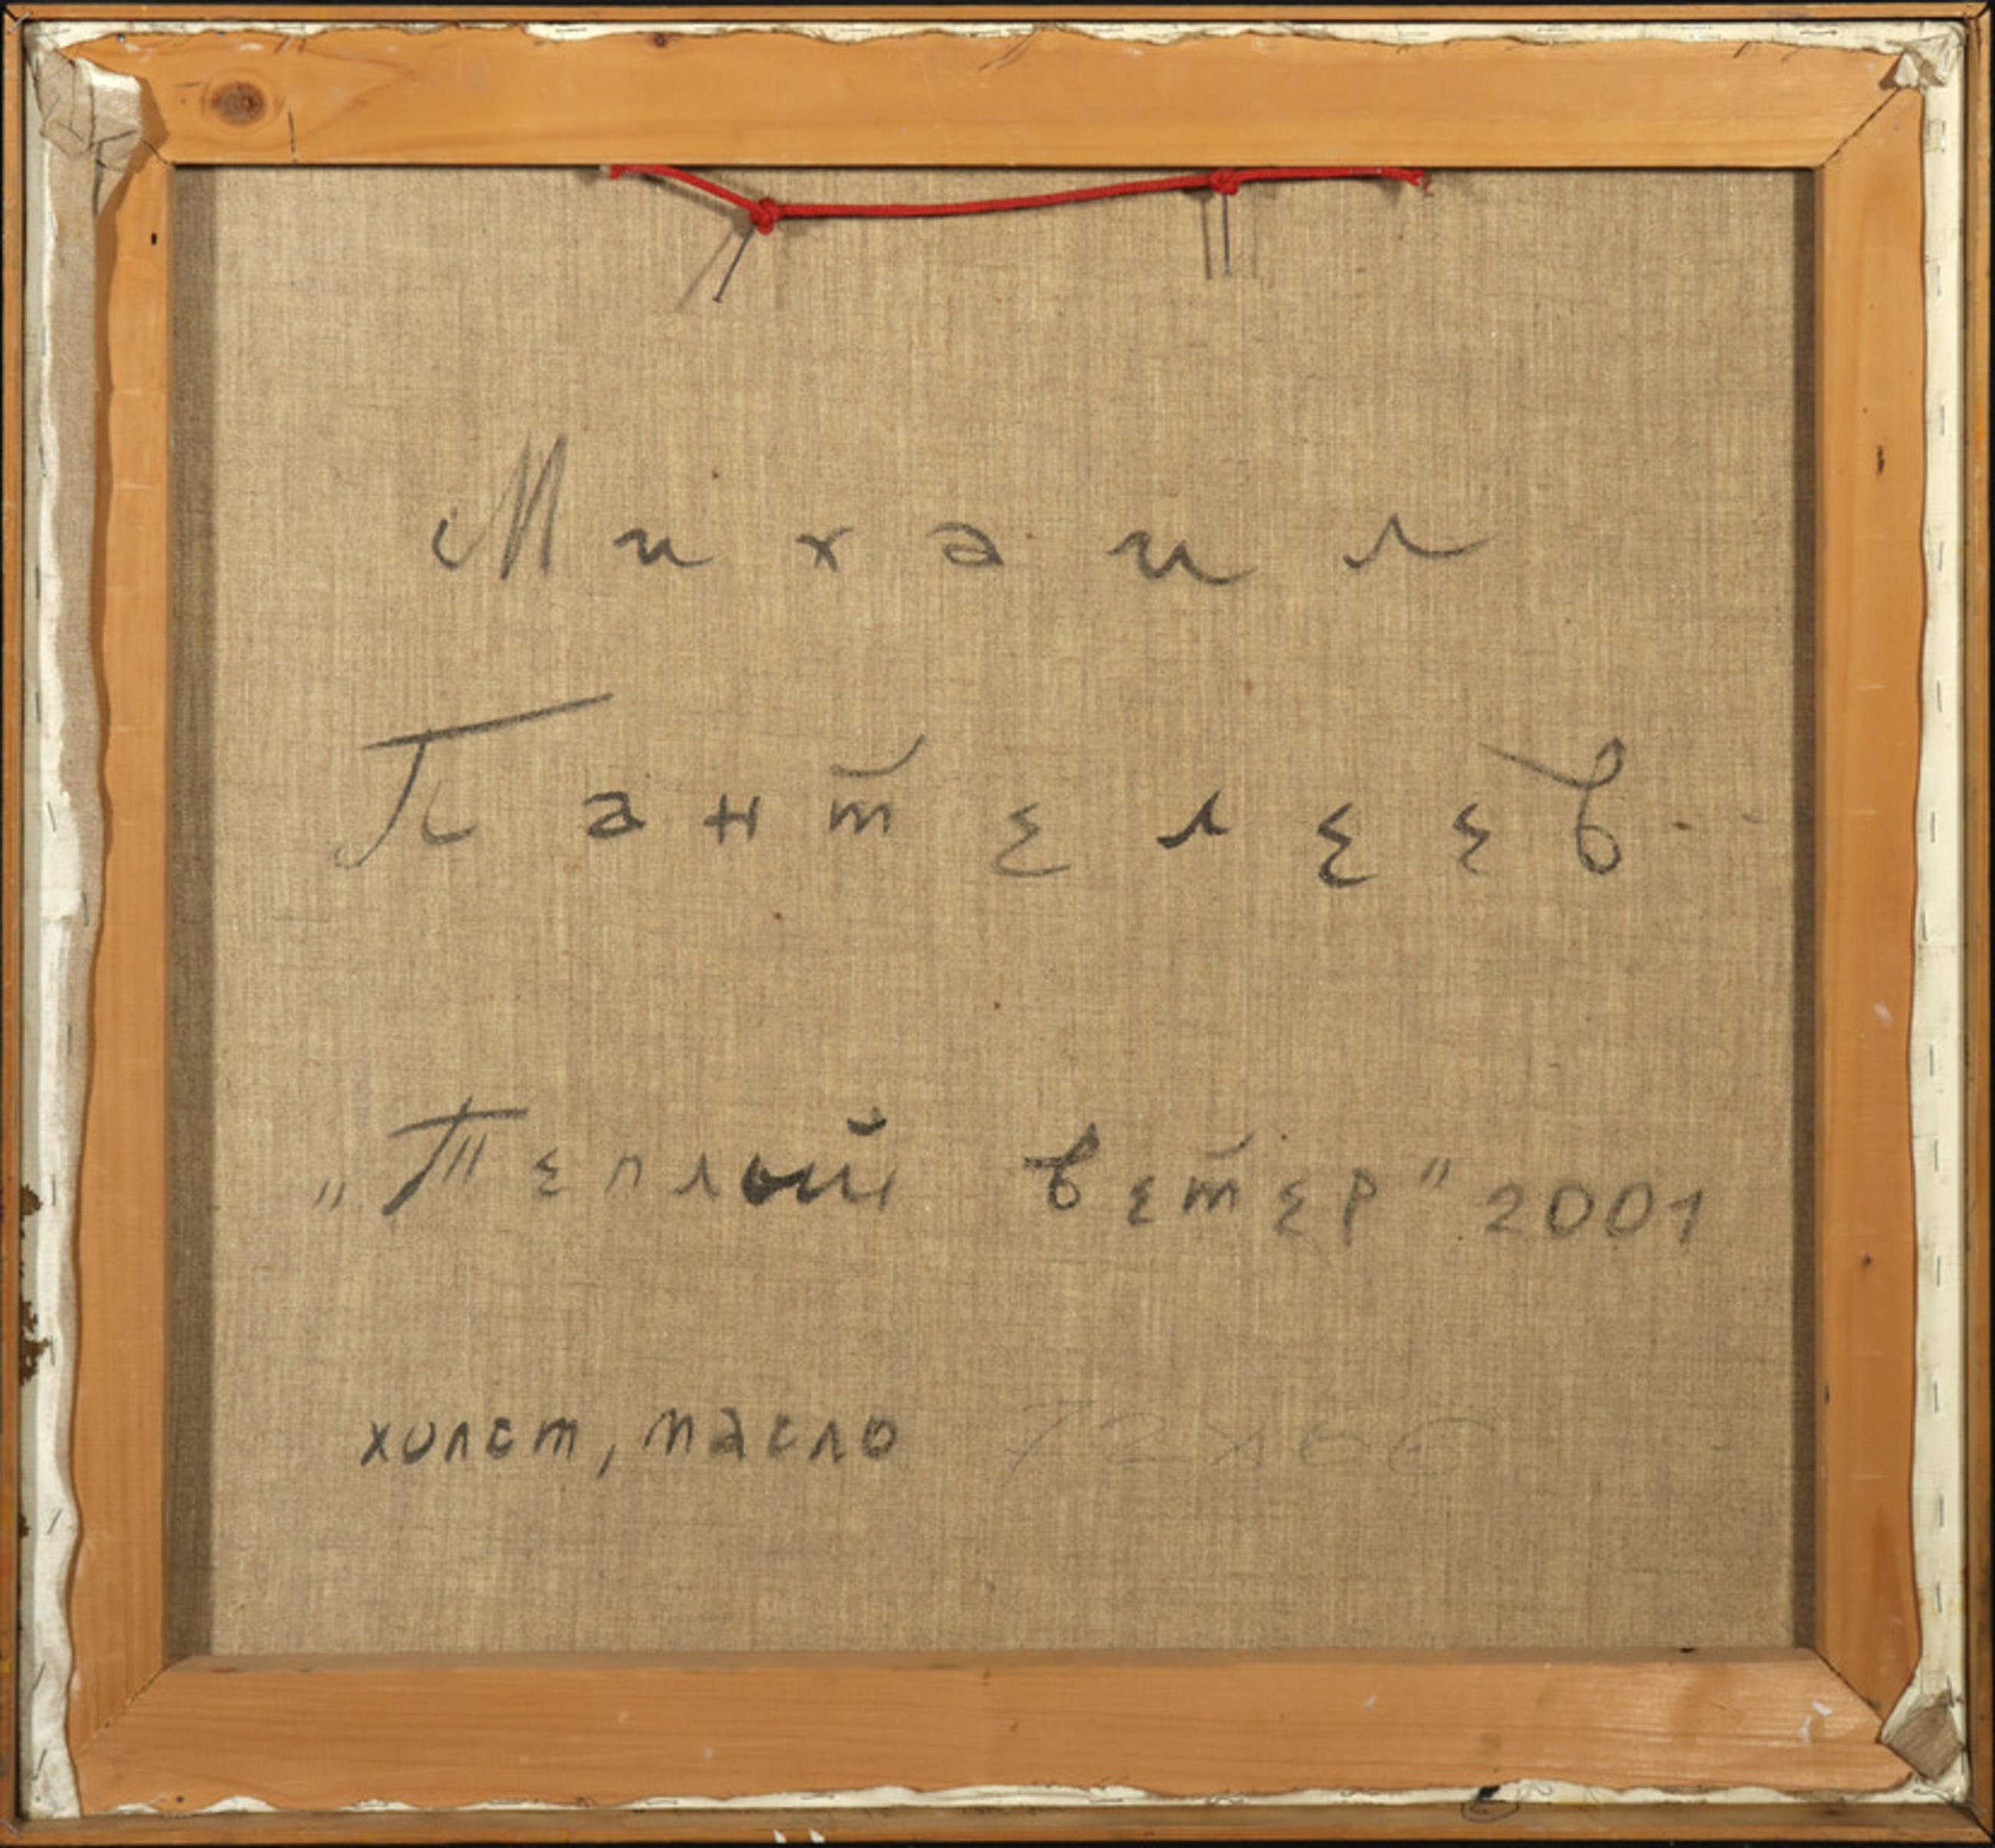 Михаил
Пантелеев
„Теплый ветер" 2001
холст, масло 72х66